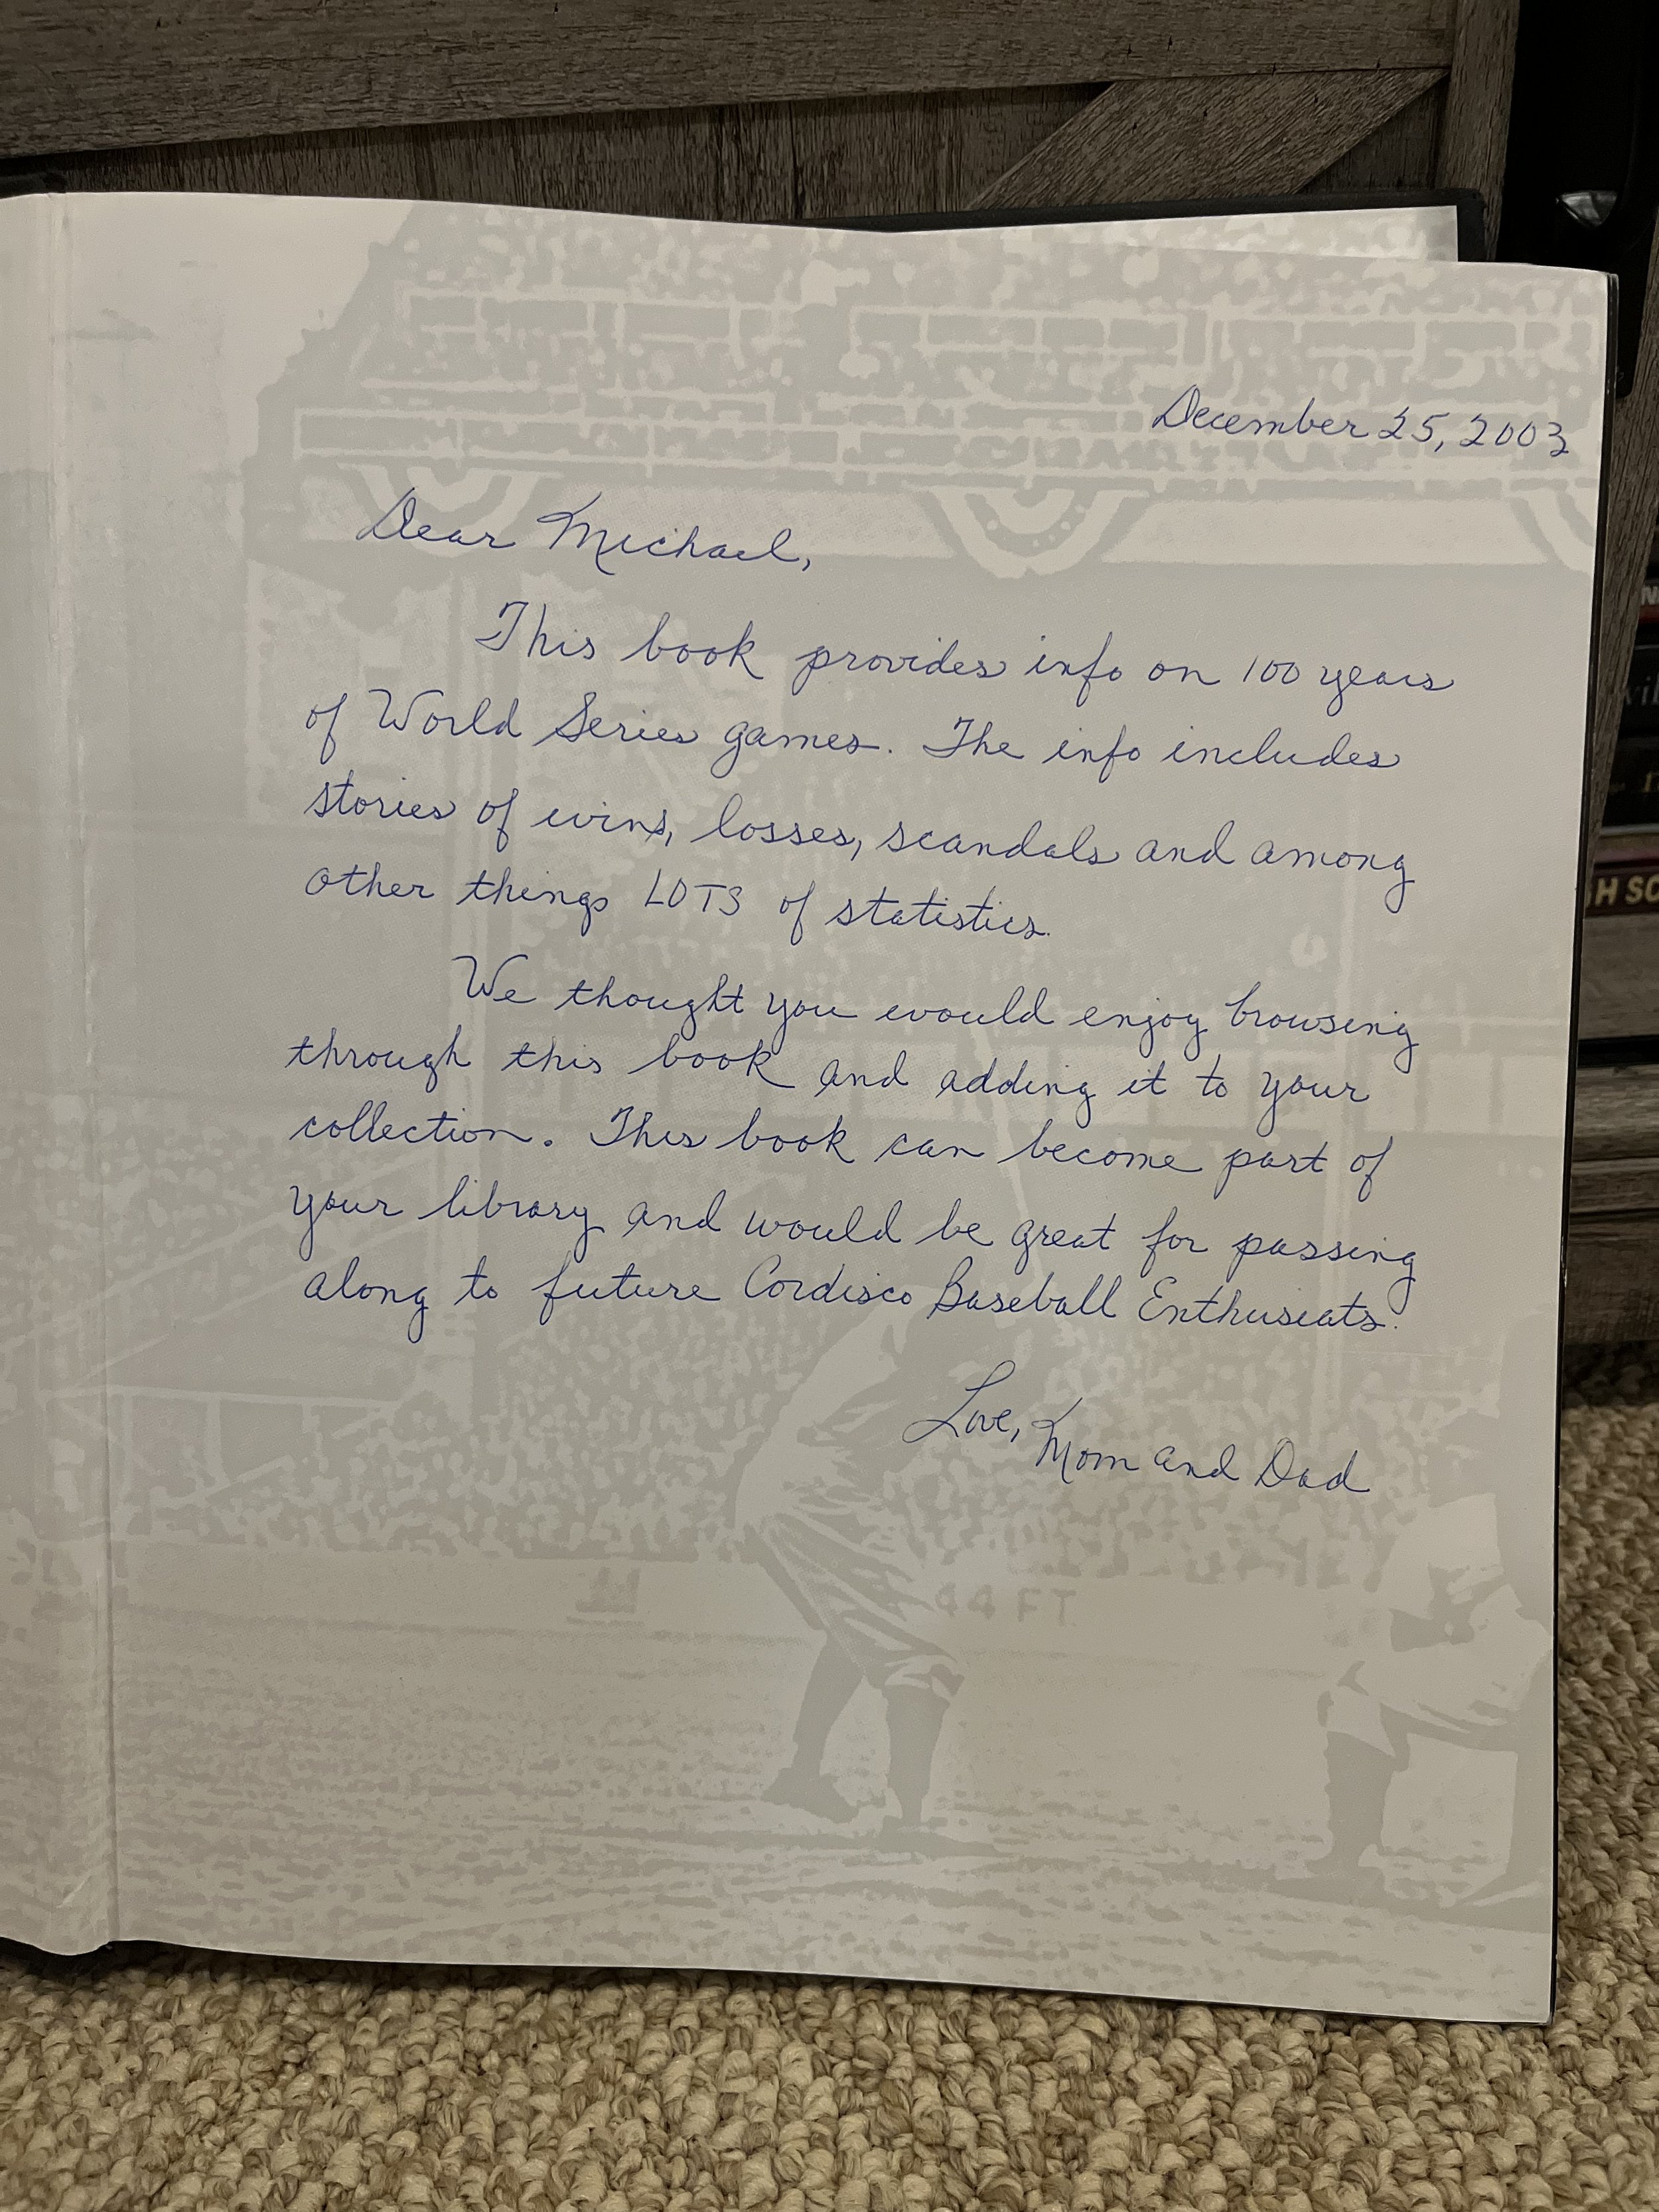 December 25, 2003
Dear Michael,
This book provides info on 100 years
of World Series games. The info includes
stories of wins, losses, scandals and among
other things LOTS of statistics.
We thought you would enjoy browsing
through this book and adding it to your
collection. This book can become part of
your library and would be great for passing
along to future Cordisco Baseball Enthusiats.
Love,
Mom and Dad
44 FT
GH SC